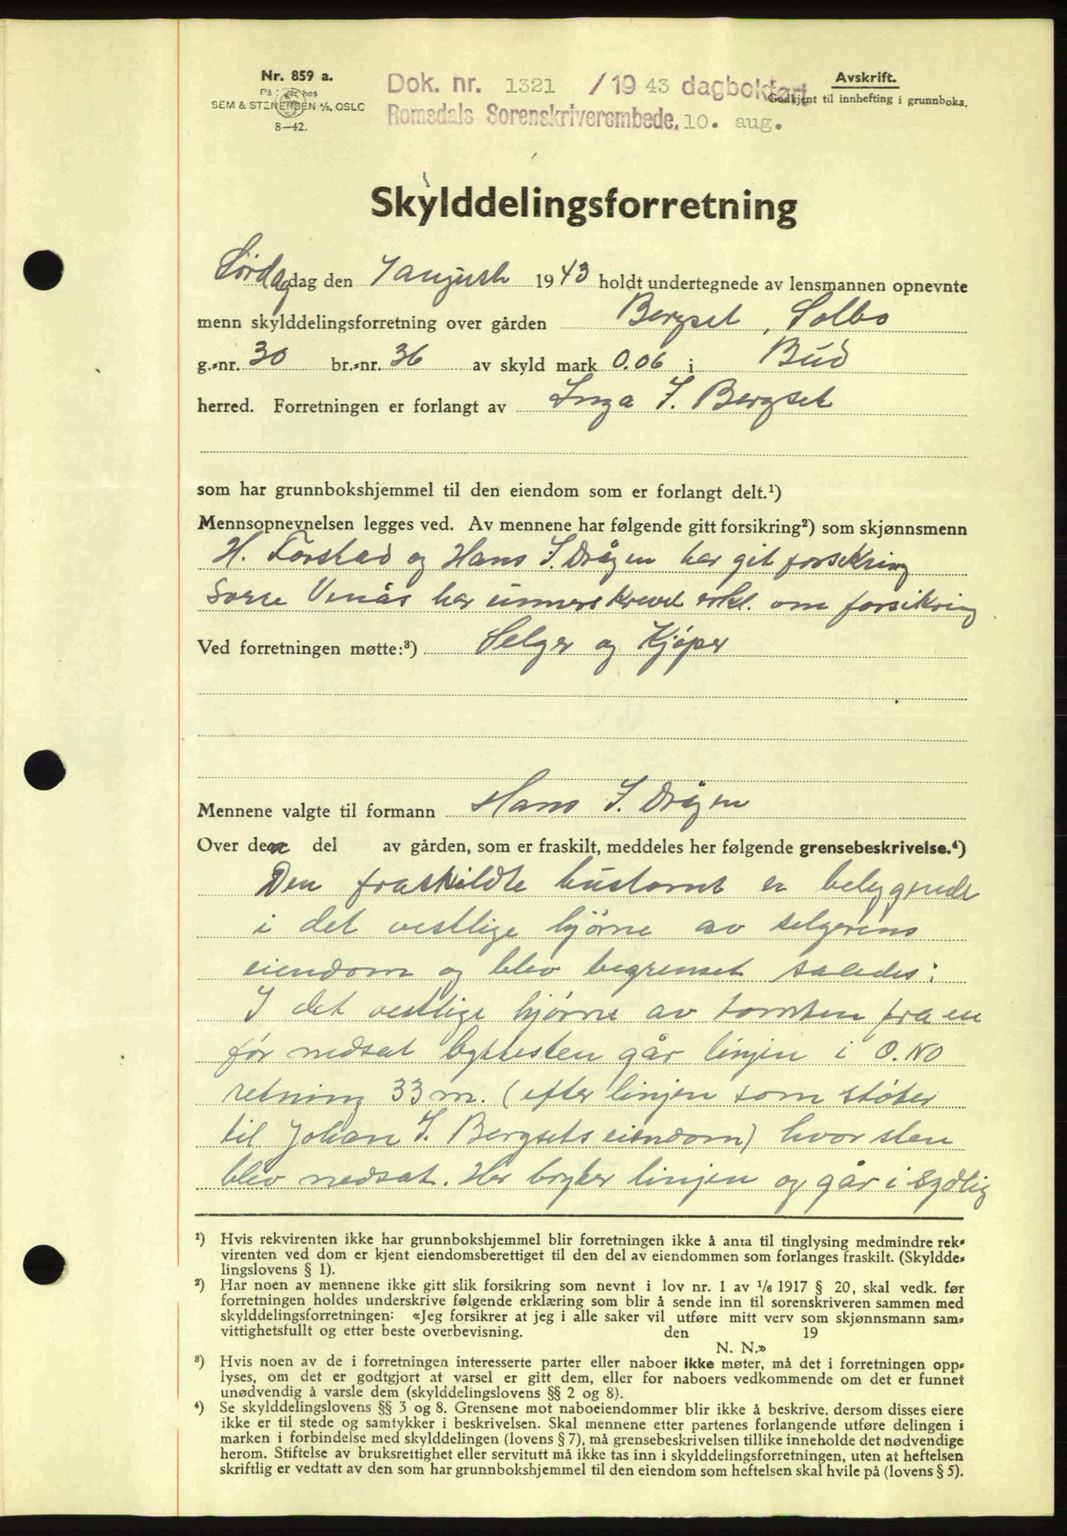 Nr. 859 a.
På hos
SEM & STENERSEN A/S, OSLO
8—42.
Dok. nr. 1321 /19 43 dagbokført
Romsdals Sorenskriverembede, 10. aug.
Avskrift.
Godkjent til innhefting i grunnboka.
Skylddelingsforretning
Lördag dag den 7 august 1943 holdt undertegnede av lensmannen opnevnte
menn skylddelingsforretning over gården Bergset, Solbo
g.-nr. 30 br.-nr. 36 av skyld mark 0.06 i Bud
herred. Forretningen er forlangt av Inga I. Bergset
som har grunnbokshjemmel til den eiendom som er forlangt delt.¹)
Mennsopnevnelsen legges ved. Av mennene har følgende gitt forsikring²) som skjønnsmenn
H. Torstad og Hans I. Drågen har git forsikring
Sverre Venås har unnerskrevet erkl. om forsikring
Ved forretningen møtte:³) Selger og Kjøper
Mennene valgte til formann Hans I. Drågen
Over den del av gården, som er fraskilt, meddeles her følgende grensebeskrivelse.⁴)
Den fraskildte hustomt er beliggende
i det vestlige hjørne av selgerens
eiendom og blev begrenset saledes:
I det vestlige hjørne av tomten fra en
før nedsat byttesten går linjen i O.NO
retning 33 m. (efter linjen som støter
til Johan I. Bergsets eiendom) hvor sten
blev nedsat. Her bryter linjen og går i sydlig
¹) Hvis rekvirenten ikke har grunnbokshjemmel blir forretningen ikke å anta til tinglysing medmindre rek-
virenten ved dom er kjent eiendomsberettiget til den del av eiendommen som forlanges fraskilt. (Skyldde-
lingslovens § 1).
²) Har noen av mennene ikke gitt slik forsikring som nevnt i lov nr. 1 av 1/6 1917 § 20, skal vedk. før
forretningen holdes underskrive følgende erklæring som blir å sende inn til sorenskriveren sammen med
skylddelingsforretningen: «Jeg forsikrer at jeg i alle saker vil utføre mitt verv som skjønnsmann sam-
vittighetsfullt og etter beste overbevisning. den 19
N. N.»
³) Hvis noen av de i forretningen interesserte parter eller naboer ikke møter, må det i forretningen opp-
lyses, om det er godtgjort at varsel er gitt dem, eller for naboers vedkommende om det er funnet
unødvendig å varsle dem (skylddelingslovens §§ 2 og 8).
⁴) Se skylddelingslovens §§ 3 og 8. Grensene mot naboeiendommer blir ikke å beskrive, dersom disses eiere
ikke er til stede og samtykker i beskrivelsen. Skal mennene etter partenes forlangende utføre delingen i
marken i forbindelse med skylddelingen (lovens § 7), må grensebeskrivelsen tillike inneholde det nødvendige
herom. Stiftelse av bruksrettighet eller servitutt må ikke tas inn i skylddelingsforretningen, uten at heftelsen
skriftlig er vedtatt av den som har grunnbokshjemmel til den eiendom som heftelsen skal hvile på (lovens § 5).